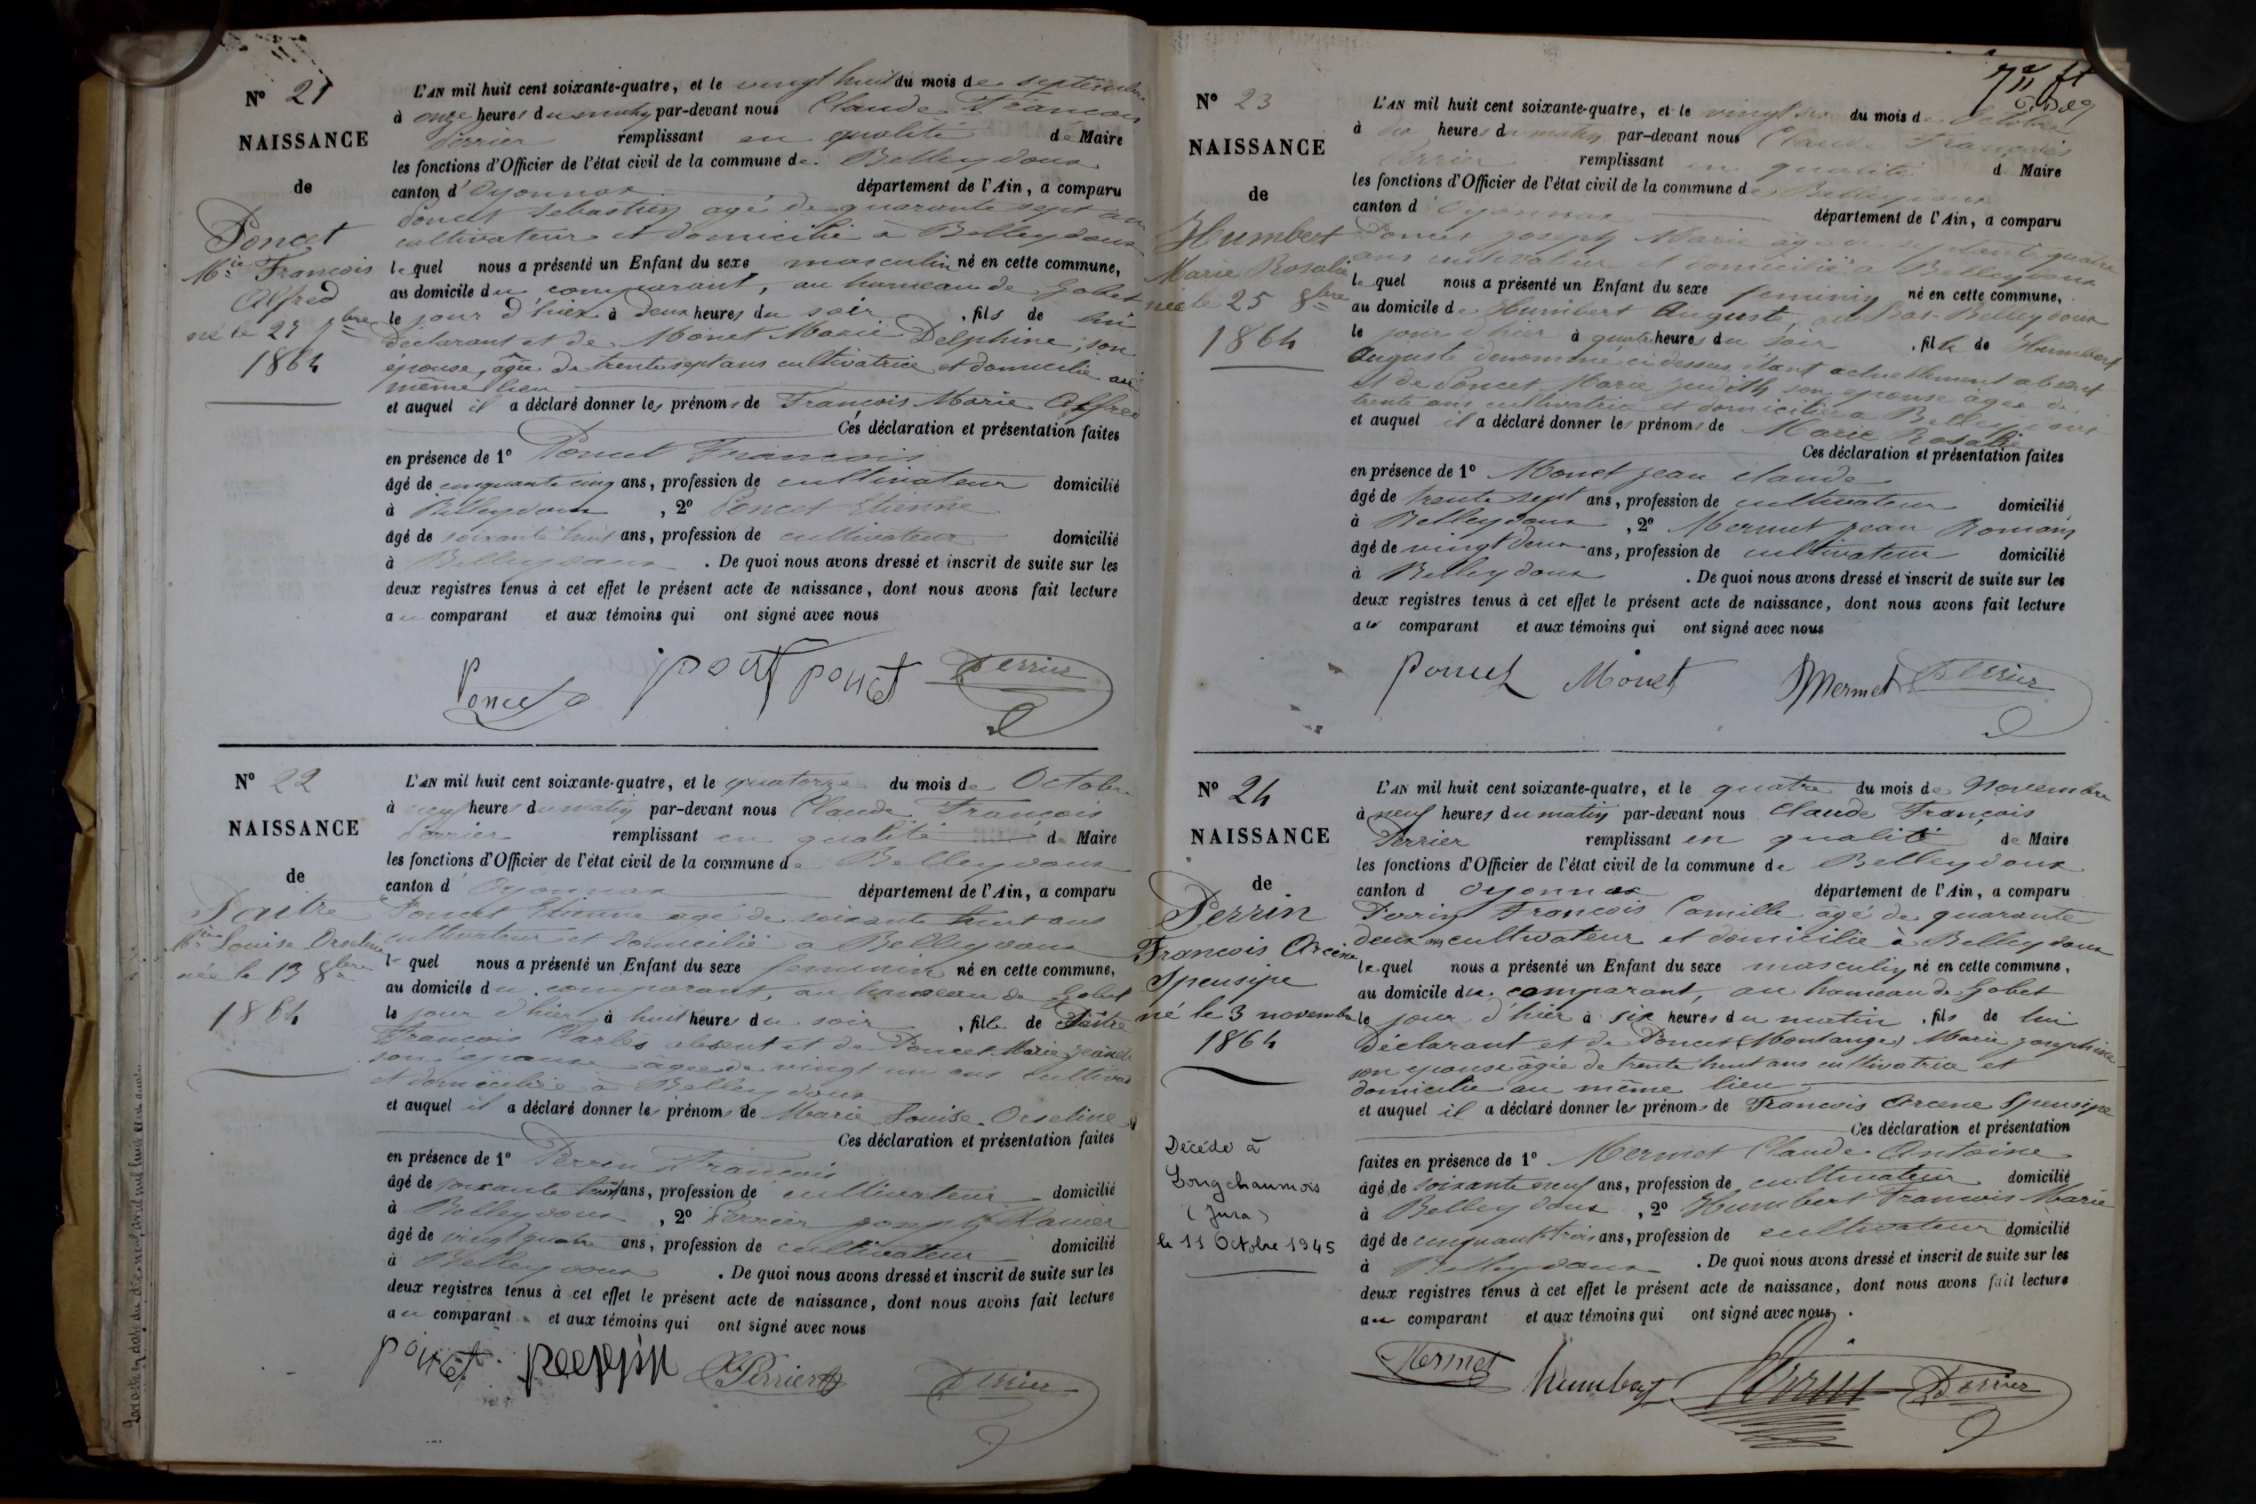 N° 21
NAISSANCE
de
Poncet
Mie François
Alfred
né le 27 7bre
1864
L'AN mil huit cent soixante-quatre, et le vingt huit du mois de septembre
à onze heures du matin par-devant nous Claude François
Perrier remplissant en qualité de Maire
les fonctions d'Officier de l'état civil de la commune de Belleydoux
canton d'Oyonnax département de l'Ain, a comparu
Poncet Sébastien agé de quarante sept ans
cultivateur et domicilié à Belleydoux
lequel nous a présenté un Enfant du sexe masculin né en cette commune,
au domicile du comparant, au hameau de Gobet
le jour d'hier à deux heures du soir, fils de lui
déclarant et de Monet Marie Delphine, son
épouse, âgée de trente sept ans cultivatrice et domicilié au
même lieu
et auquel il a déclaré donner les prénoms de François Marie Alfred
Ces déclaration et présentation faites
en présence de 1° Poncet François
âgé de cinquante cinq ans, profession de cultivateur domicilié
à Belleydoux, 2° Poncet Etienne
âgé de soixante huit ans, profession de cultivateur domicilié
à Belleydoux. De quoi nous avons dressé et inscrit de suite sur les
deux registres tenus à cet effet le présent acte de naissance, dont nous avons fait lecture
au comparant et aux témoins qui ont signé avec nous
Poncet poncet Perrier
N° 22
NAISSANCE
de
Daitre
Mie Louise Orseline
née le 13 8bre
1864
L'AN mil huit cent soixante-quatre, et le quatorze du mois de Octobre
à neuf heures du matin par-devant nous Claude François
Perrier remplissant en qualité de Maire
les fonctions d'Officier de l'état civil de la commune de Belleydoux
canton d'Oyonnax département de l'Ain, a comparu
Poncet Etienne agé de soixante huit ans
cultivateur et domicilié a Belleydoux
lequel nous a présenté un Enfant du sexe feminin né en cette commune,
au domicile du comparant, au hameau de Gobet
le jour d'hier à huit heures du soir, fille de
François Charles absent et de Poncet Marie
son épouse âgée de vingt un ans
et domiciliée à Belleydoux
et auquel il a déclaré donner les prénoms de Marie Louise Orseline
Ces déclaration et présentation faites
en présence de 1° Perrin François
âgé de soixante huit ans, profession de cultivateur domicilié
à Belleydoux, 2° Perrier joseph
âgé de vingt quatre ans, profession de cultivateur domicilié
à Belleydoux. De quoi nous avons dressé et inscrit de suite sur les
deux registres tenus à cet effet le présent acte de naissance, dont nous avons fait lecture
au comparant et aux témoins qui ont signé avec nous
poncet Perrier Perrier
N° 23
NAISSANCE
de
Humbert
Marie Rosalie
née le 25 8bre
1864
L'AN mil huit cent soixante-quatre, et le vingt six du mois de Octobre
à heures du matin par-devant nous Claude François
Perrier remplissant en qualité d Maire
les fonctions d'Officier de l'état civil de la commune de Belleydoux
canton d'Oyonnax département de l'Ain, a comparu
Poncet joseph Marie âgé de septante quatre
ans cultivateur et domicilié a Belleydoux
lequel nous a présenté un Enfant du sexe feminin né en cette commune,
au domicile de Humbert Auguste, au Bas-Belleydoux
le jour d'hier à quatre heures du soir, fille de Humbert
Auguste dénommé ci dessus, étant actuellement absent
et de Poncet Marie judith son épouse âgée de
trente ans cultivatrice et domiciliée a Belleydoux
et auquel il a déclaré donner les prénoms de Marie Rosalie
Ces déclaration et présentation faites
en présence de 1° Monet jean claude
âgé de trente sept ans, profession de cultivateur domicilié
à Belleydoux, 2° Mermet jean Romain
âgé de vingt deux ans, profession de cultivateur domicilié
à Belleydoux. De quoi nous avons dressé et inscrit de suite sur les
deux registres tenus à cet effet le présent acte de naissance, dont nous avons fait lecture
au comparant et aux témoins qui ont signé avec nous
Poncet Monet Mermet Perrier
N° 24
NAISSANCE
de
Perrin
François Arcène
Speusipe
né le 3 novembre
1864
Décédé à
Longchaumois
(Jura)
le 11 Octobre 1945
L'AN mil huit cent soixante-quatre, et le quatre du mois de Novembre
à neuf heures du matin par-devant nous Claude François
Perrier remplissant en qualité de Maire
les fonctions d'Officier de l'état civil de la commune de Belleydoux
canton d Oyonnax département de l'Ain, a comparu
Perrin François Camille âgé de quarante
deux ans cultivateur et domicilié à Belleydoux
lequel nous a présenté un Enfant du sexe masculin né en cette commune,
au domicile du comparant, au hameau de Gobet
le jour d'hier à six heures du matin, fils de lui
Déclarant et de Poncet (Montange) Marie josephine
son épouse âgée de trente huit ans cultivatrice et
domicilié au même lieu
et auquel il a déclaré donner les prénoms de François Arcene Speusipe
Ces déclaration et présentation
faites en présence de 1° Mermet Claude Antoine
âgé de soixante neuf ans, profession de cultivateur domicilié
à Belleydoux, 2° Humbert François Marie
âgé de cinquante trois ans, profession de cultivateur domicilié
à Belleydoux. De quoi nous avons dressé et inscrit de suite sur les
deux registres tenus à cet effet le présent acte de naissance, dont nous avons fait lecture
au comparant et aux témoins qui ont signé avec nous.
Mermet humbert Perrin Perrier